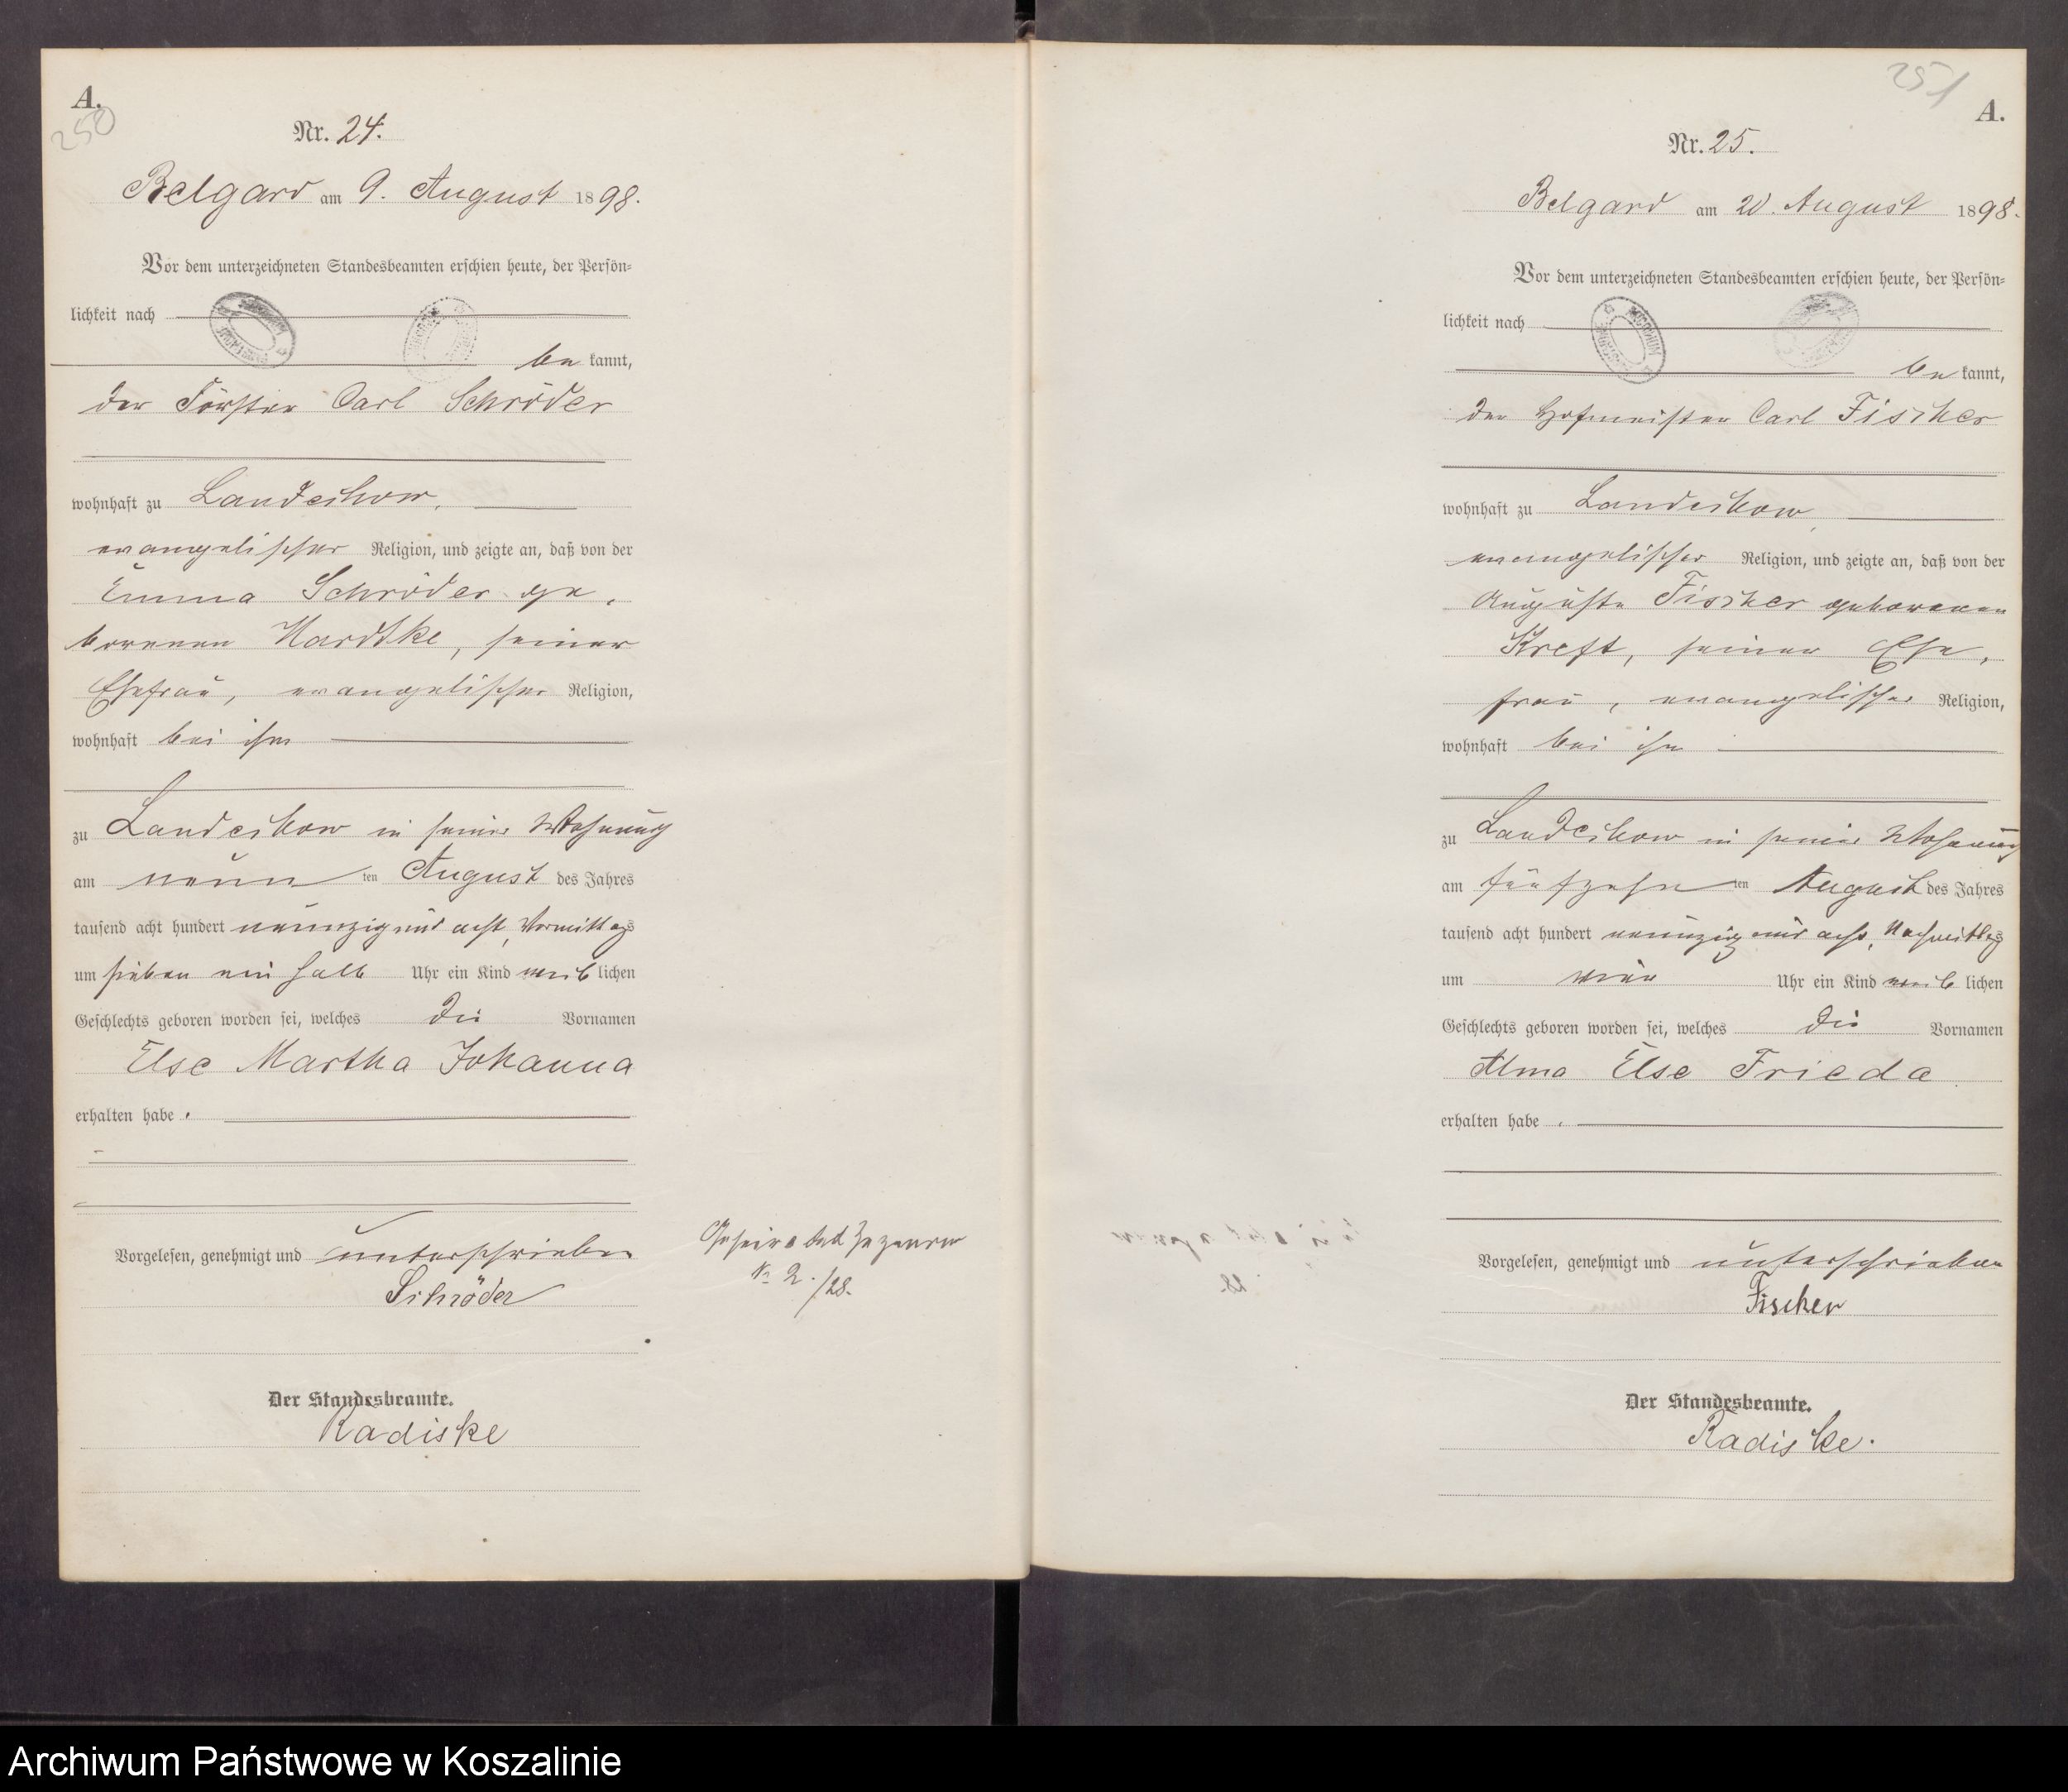 A.
250
Nr. 24.
Belgard am 9. August 1898.
Vor dem unterzeichneten Standesbeamten erschien heute, der Persön-
lichkeit nach
be kannt,
der Förster Carl Schröder
wohnhaft zu Landechow,
evangelischer Religion, und zeigte an, daß von der
Emma Schröder ge-
borenen Hardtke, seiner
Ehefrau, evangelischer Religion,
wohnhaft bei ihm
zu Landechow in seiner Wohnung
am neun ten August des Jahres
tausend acht hundert neunzig und acht, Vormittags
um sieben ein halb Uhr ein Kind weib lichen
Geschlechts geboren worden sei, welches die Vornamen
Else Martha Johanna
erhalten habe.
Vorgelesen, genehmigt und unterschrieben
Schröder
Der Standesbeamte.
Radiske
No 2./28.
251
A.
Nr. 25.
Belgard am 20. August 1898.
Vor dem unterzeichneten Standesbeamten erschien heute, der Persön-
lichkeit nach
be kannt,
der Hofmeister Carl Fischer
wohnhaft zu Landechow,
evangelischer Religion, und zeigte an, daß von der
Auguste Fischer geborenen
Kreft, seiner Ehe-
frau, evangelischer Religion,
wohnhaft bei ihm
zu Landechow in seiner Wohnung
am fünfzehn ten August des Jahres
tausend acht hundert neunzig und acht, Nachmittags
um vier Uhr ein Kind weib lichen
Geschlechts geboren worden sei, welches die Vornamen
Alma Else Frieda
erhalten habe.
Vorgelesen, genehmigt und unterschrieben
Fischer
Der Standesbeamte.
Radiske.
Archiwum Państwowe w Koszalinie